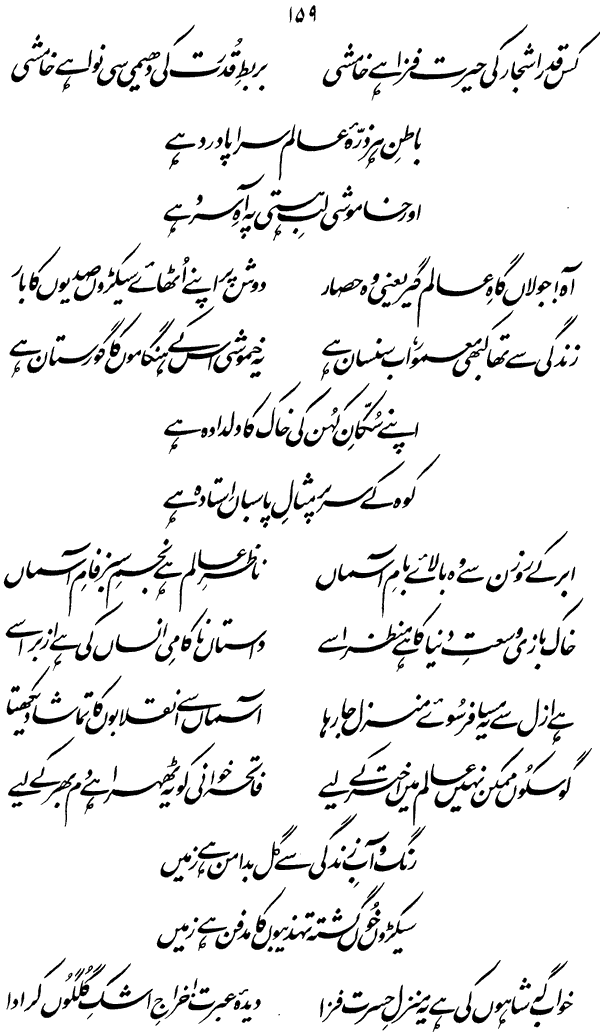 ۱۵۹
کس قدر اشجار کی حیرت فزا ہے خامشی بربطِ قُدرت کی دھیمی سی نوا ہے خامشی
باطنِ ہر ذرّۂ عالم سراپا درد ہے
اور خاموشی لبِ ہستی پہ آہِ سرد ہے
آہ! جولاں گاہِ عالم گیر یعنی وہ حصار دوش پر اپنے اُٹھائے سیکڑوں صدیوں کا بار
زندگی سے تھا کبھی معمور، اب سنسان ہے یہ خموشی اس کے ہنگاموں کا گورستان ہے
اپنے سُکّانِ کُہن کی خاک کا دلدادہ ہے
کوہ کے سر پر مثالِ پاسباں اِستادہ ہے
ابر کے روزن سے وہ بالائے بامِ آسماں ناظرِ عالم ہے نجمِ سبز فامِ آسماں
خاک بازی وسعتِ دنیا کا ہے منظر اسے داستاں ناکامیِ انساں کی ہے ازبر اسے
ہے ازل سے یہ مسافر سُوئے منزل جا رہا آسماں سے انقلابوں کا تماشا دیکھتا
گو سکُوں ممکن نہیں عالم میں اختر کے لیے فاتحہ خوانی کو یہ ٹھہرا ہے دم بھر کے لیے
رنگ و آبِ زندگی سے گُل بدامن ہے زمیں
سیکڑوں خُوں گشتہ تہذیبوں کا مدفن ہے زمیں
خواب گہ شاہوں کی ہے یہ منزلِ حسرت فزا دیدۂ عبرت! خراجِ اشکِ گُلگُوں کر ادا